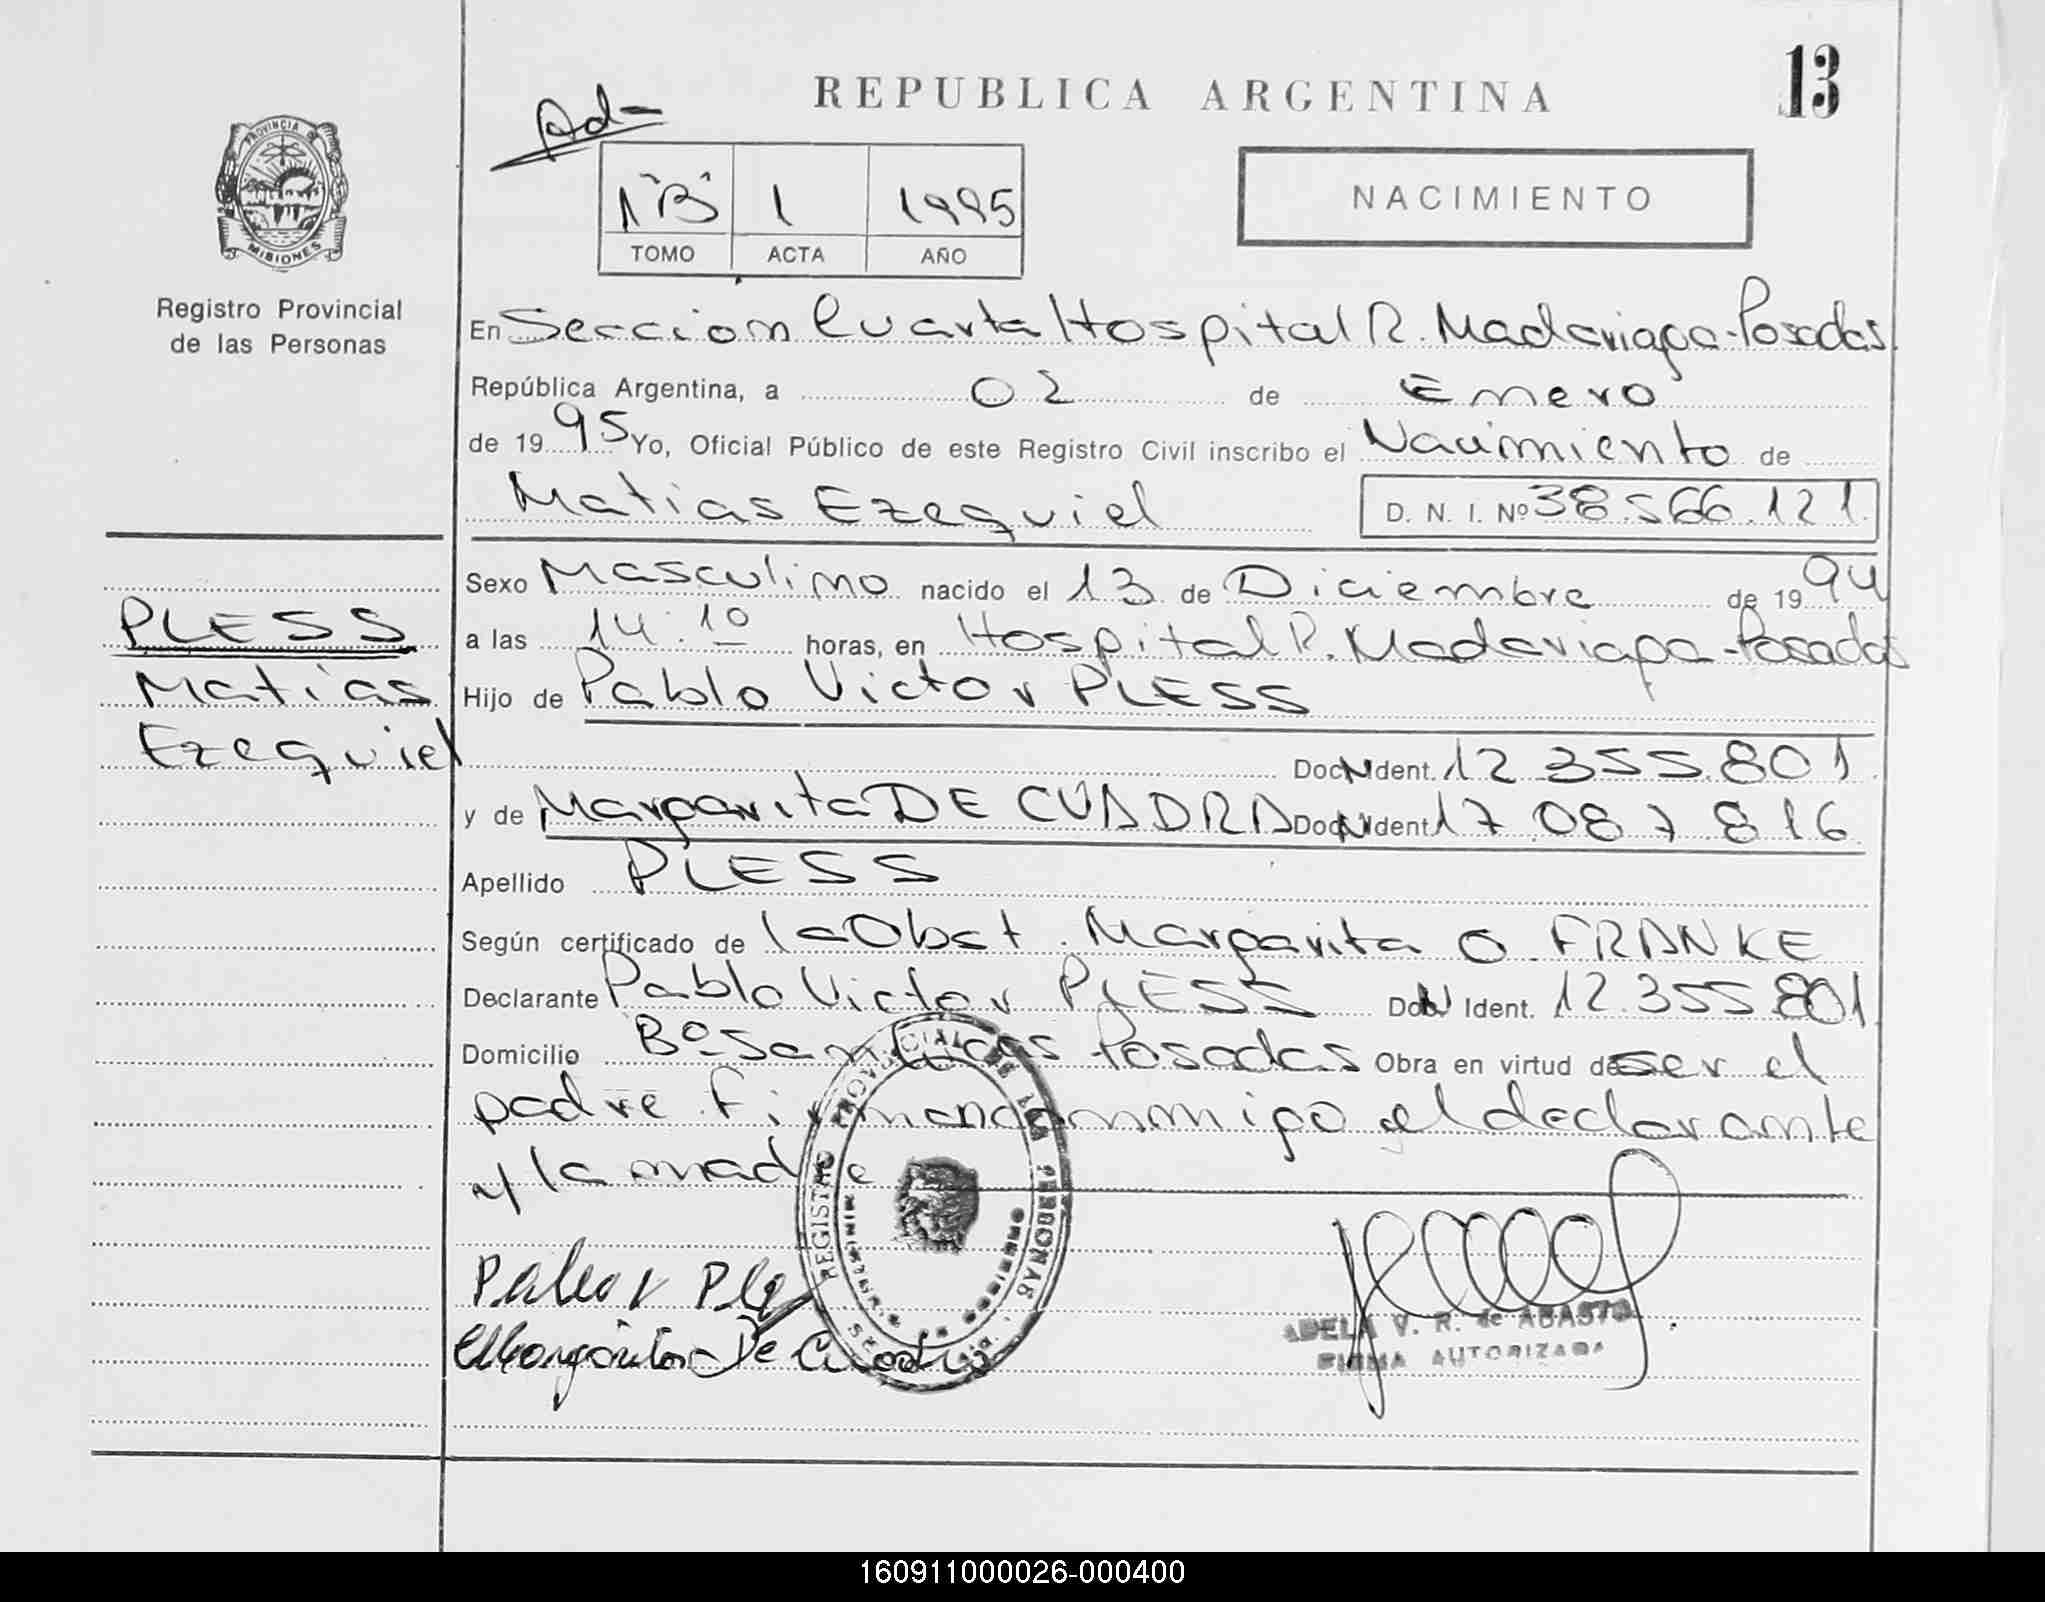 13
REPUBLICA ARGENTINA
Ad-
1"B" 1 1995
TOMO ACTA AÑO
NACIMIENTO
PROVINCIA DE
MISIONES
Registro Provincial
de las Personas
En Sección Cuarta Hospital R. Madariaga-Posadas
República Argentina, a 02 de Enero
de 1995 Yo, Oficial Público de este Registro Civil inscribo el Nacimiento de
Matias Ezequiel D. N. I. Nº 38.566.121.
PLESS
Matias
Ezequiel
Sexo Masculino nacido el 13 de Diciembre de 1994
a las 14:10 horas, en Hospital R. Madariaga-Posadas
Hijo de Pablo Victor PLESS
Doc N Ident. 12 355.801
y de Margarita DE CUADRA Doc N Ident 17 087 816
Apellido PLESS
Según certificado de la Obst. Margarita O. FRANKE
Declarante Pablo Victor PLESS Doc N Ident. 12.355.801
Domicilio Bº San Lucas Posadas Obra en virtud de ser el
padre. Firmando conmigo el declarante
y la madre
REGISTRO PROVINCIAL DE LAS PERSONAS
Margarita De Cuadra
ADELA V. R. de ABASTO
FIRMA AUTORIZADA
160911000026-000400